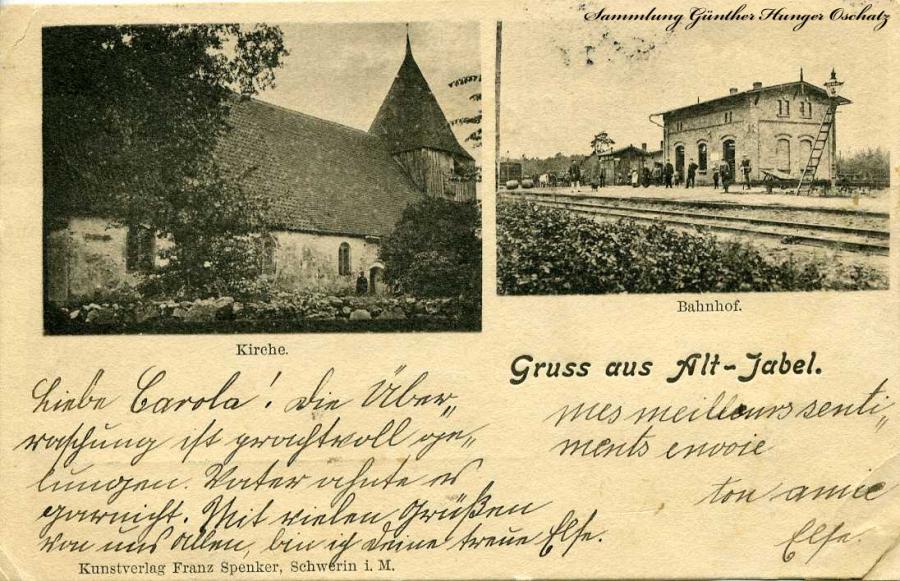 Sammlung Günther Hunger Oschatz
Kirche.
Bahnhof.
Gruss aus Alt-Jabel.
Liebe Carola! Die Über„
raschung ist prachtvoll ge„
lungen. Vater ahnte es
garnicht. Mit vielen Grüßen
von uns Allen, bin ich Deine treue Else.
mes meilleurs senti„
ments envoie
ton amie
Else.
Kunstverlag Franz Spenker, Schwerin i. M.